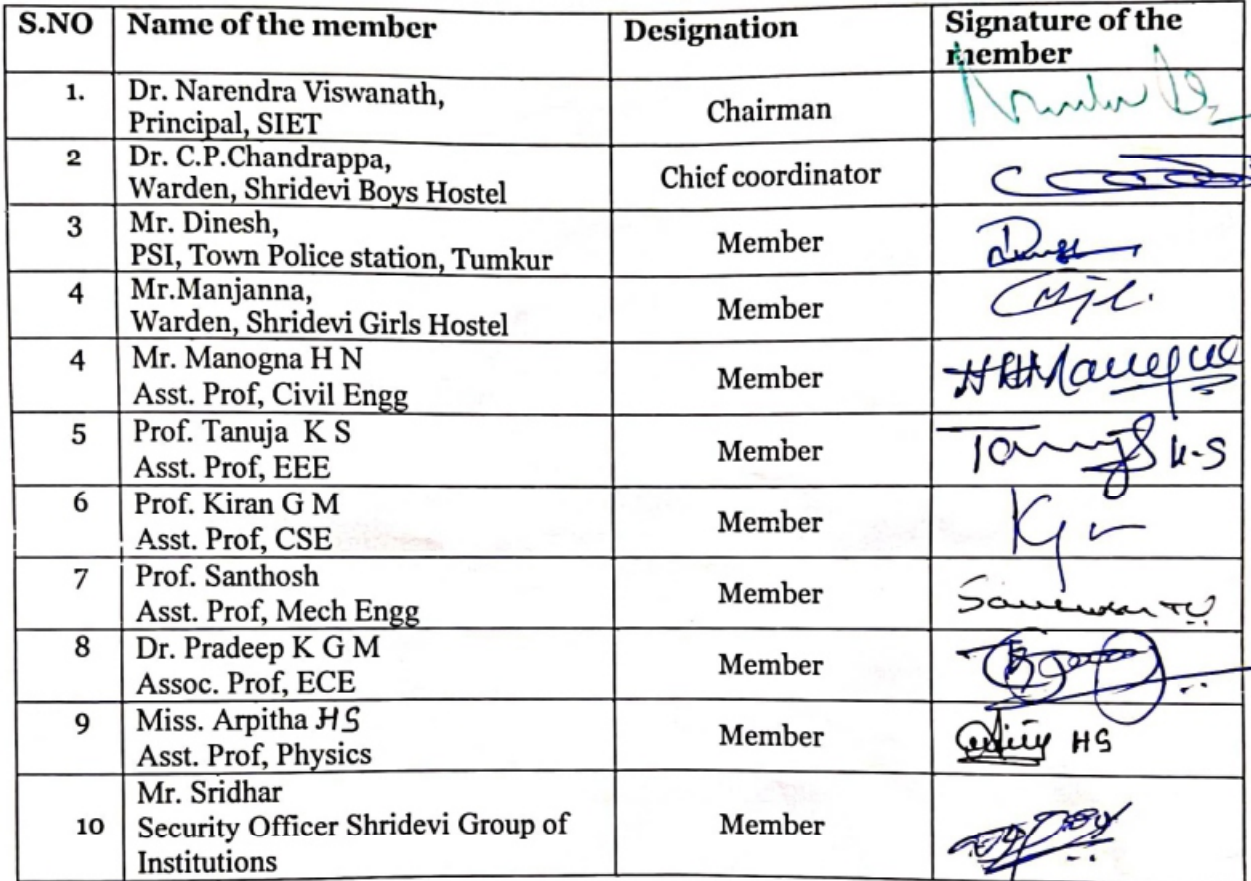 S.NO Name of the member Designation Signature of the
member
1. Dr. Narendra Viswanath,
Principal, SIET Chairman
2 Dr. C.P.Chandrappa,
Warden, Shridevi Boys Hostel Chief coordinator
3 Mr. Dinesh,
PSI, Town Police station, Tumkur Member
4 Mr.Manjanna,
Warden, Shridevi Girls Hostel Member
4 Mr. Manogna H N
Asst. Prof, Civil Engg Member
5 Prof. Tanuja K S
Asst. Prof, EEE Member K-S
6 Prof. Kiran G M
Asst. Prof, CSE Member
7 Prof. Santhosh
Asst. Prof, Mech Engg Member
8 Dr. Pradeep K G M
Assoc. Prof, ECE Member
9 Miss. Arpitha HS
Asst. Prof, Physics Member HS
10 Mr. Sridhar
Security Officer Shridevi Group of
Institutions Member